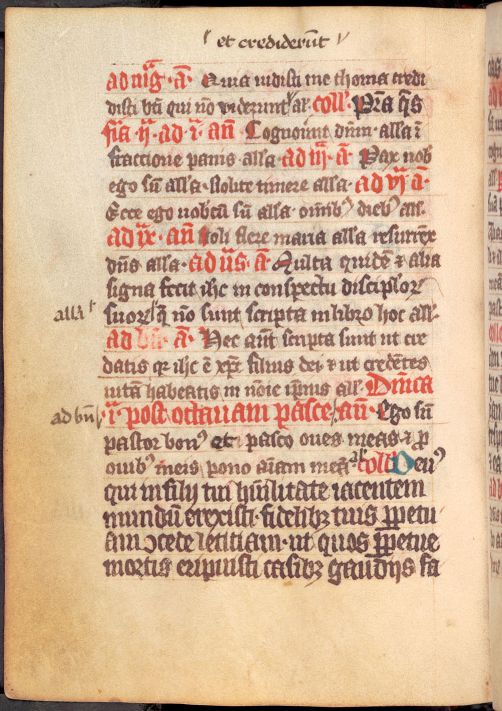 et crediderūt
ad mīg · a̅ · Quia uidisti me thoma credi
disti bti qui nō viderunt ar coll' Pr̄a q̄s
fīa ij · ad i · an̄ · Cognouīnt dnm̄ · alla ī
fractione panis alla · ad iij · a̅ · Pax uob
ego sū alla · nolite timere alla · ad vj a̅ ·
Ecce ego uobcū sū alla · omībꝰ diebꝰ all'
ad ix · an̄ Noli flere maria alla resurrēx
dn̄s alla · ad ūs · a̅ Multa quidē ⁊ alia
signa fecit ihc in conspectu disciplorꝝ
alla suorꝝ q̄ nō sunt scripta in libro hoc all'
ad bn̄ · a̅ · Hec aūt scripta sunt ut cre
datis qꝛ ihc ē xp̄c filius dei · ⁊ ut credētes
uitā habeatis in nōie ip̄ius all' Dnīca
ad bn̄ ij · post octauam pasce · an̄ · Ego sū
pastor bonꝰ et pasco oues meas ⁊ p
ouibꝰ meis pono aīam meā coll' Deuꝰ
qui in filij tui hūilitate iacentem
mundū erexisti · fidelibꝫ tuis ꝑpetu
am ↄcede letitiam · ut quos ꝑpetue
mortis eripuisti casibꝫ gaudijs fa